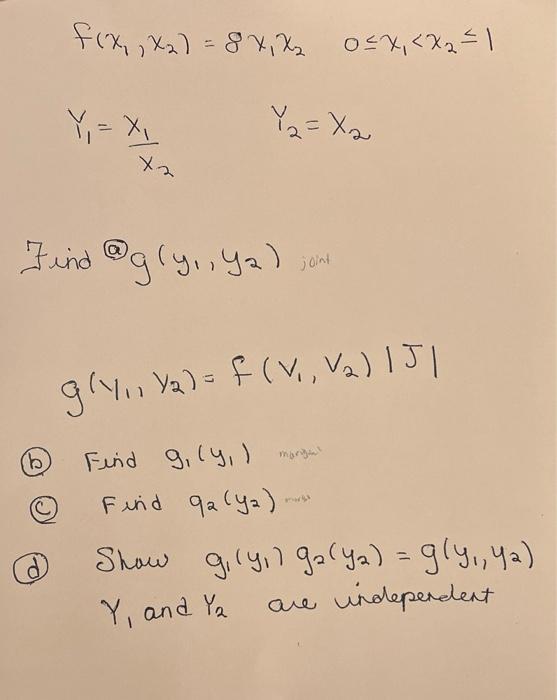 f(x₁, x₂) = 8 x₁x₂ 0 ≤ x₁ < x₂ ≤ 1
Y₁ = x₁/x₂ Y₂ = X₂
Find ⓐ g(y₁, y₂) joint
g(y₁, y₂) = f(V₁, V₂) |J|
ⓑ Find g₁(y₁) marginal
ⓒ Find g₂(y₂)
ⓓ Show g₁(y₁) g₂(y₂) = g(y₁, y₂)
Y₁ and Y₂ are independent